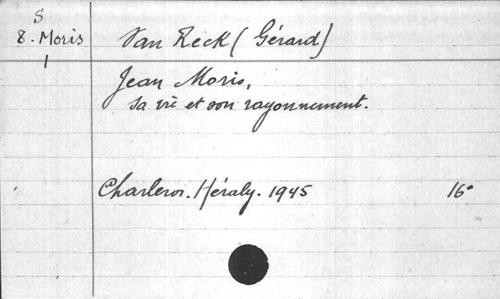 S
8. Moris
1
Van Reck (Gérard)
Jean Moris,
sa vie et son rayonnement.
Charleroi. Héraly. 1945
16°